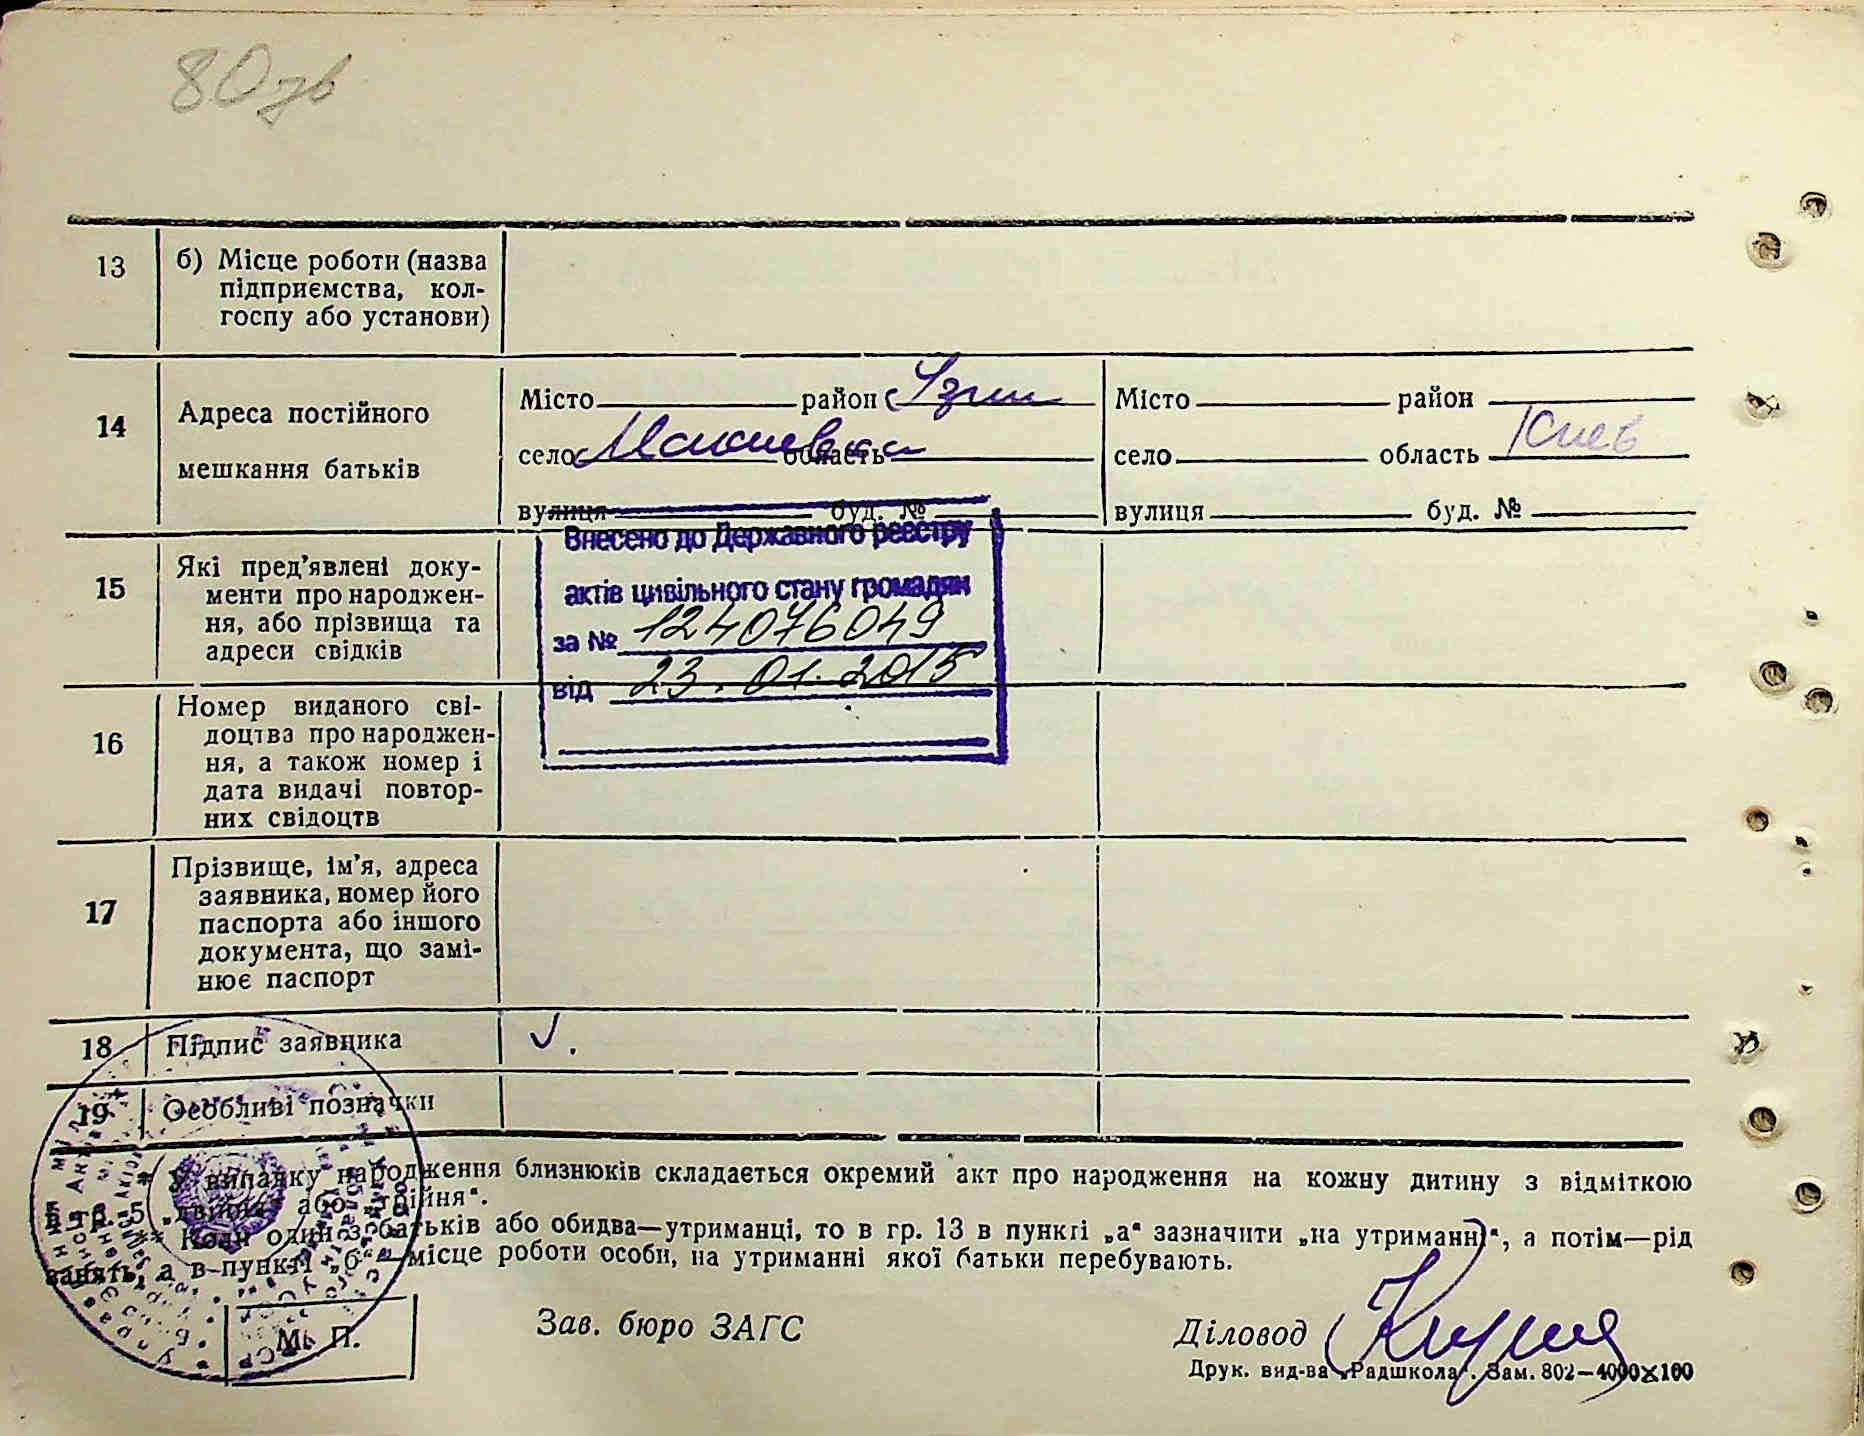 80 зв
13
б) Місце роботи (назва
підприємства, кол-
госпу або установи)
14
Адреса постійного
мешкання батьків
Місто район Узин
село Макиевка область
вулиця буд. №
Місто район
село область Киев
вулиця буд. №
15
Які пред'явлені доку-
менти про народжен-
ня, або прізвища та
адреси свідків
Внесено до Державного реєстру
актів цивільного стану громадян
за № 124076049
від 23.01.2015
16
Номер виданого сві-
доцтва про народжен-
ня, а також номер і
дата видачі повтор-
них свідоцтв
17
Прізвище, ім'я, адреса
заявника, номер його
паспорта або іншого
документа, що замі-
нює паспорт
18
Підпис заявника
19
Особливі позначки
* У випадку народження близнюків складається окремий акт про народження на кожну дитину з відміткою
в гр. 5 „двійня" або „трійня".
** Коли один з батьків або обидва—утриманці, то в гр. 13 в пункті „а" зазначити „на утриманні", а потім—рід
занять, а в пункті „б"—місце роботи особи, на утриманні якої батьки перебувають.
М. П.
Зав. бюро ЗАГС
Діловод
Друк. вид-ва „Радшкола". Зам. 802—4000×100